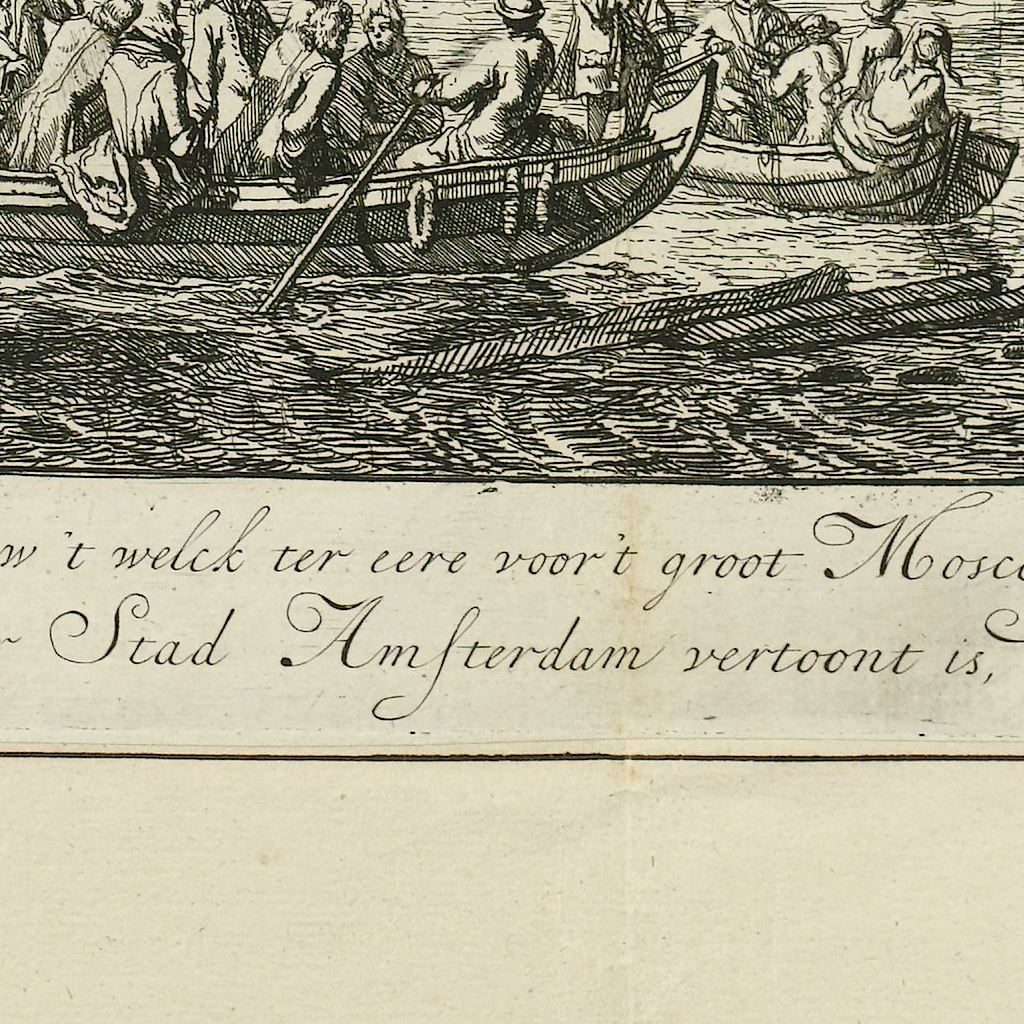 w 't welck ter eere voor 't groot Mosco
r Stad Amsterdam vertoont is,